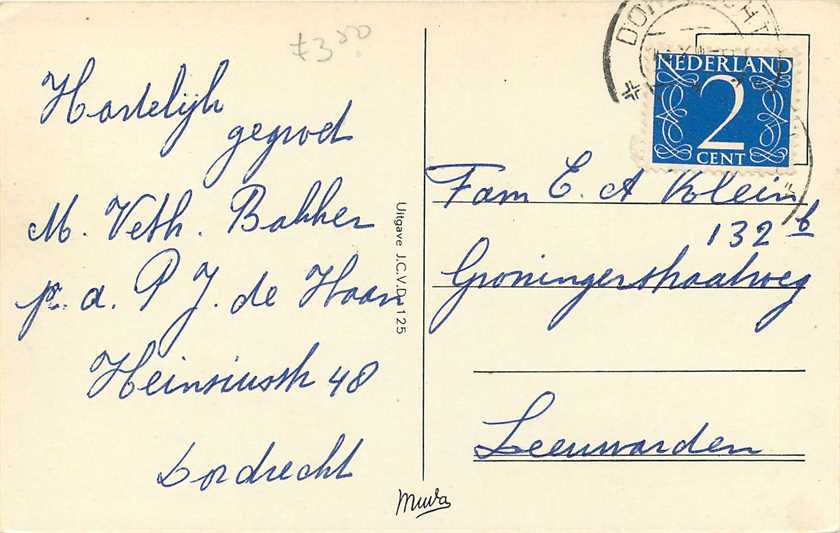 Hartelijk
gegroet
M. Veth. Bakker
p. a. P J. de Haan
Heinsiusstr 48
Dordrecht
Uitgave J.C.V.D. 125
NEDERLAND
2
CENT
Fam E. A Klein
132 b
Groningerstraatweg
Leeuwarden